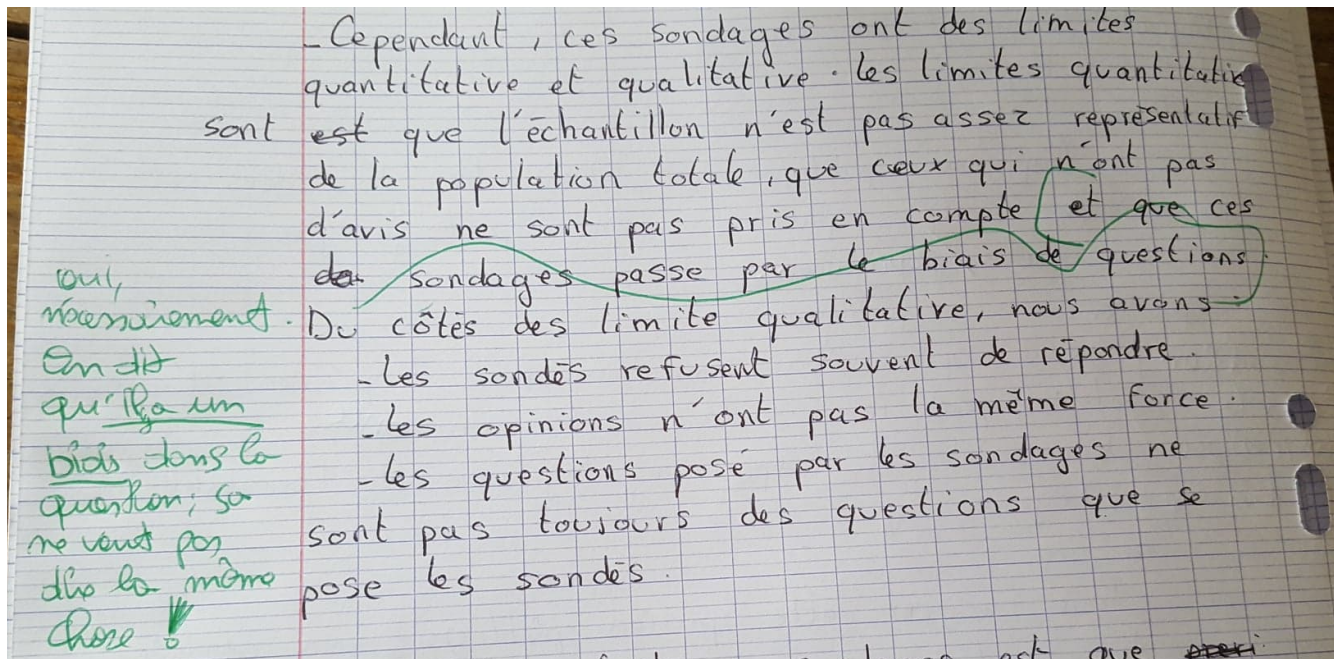 - Cependant, ces sondages ont des limites
quantitative et qualitative. Les limites quantitativ
sont est que l'échantillon n'est pas assez représentatif
de la population totale, que ceux qui n'ont pas
d'avis ne sont pas pris en compte et que ces
sondages passe par le biais de questions.
Du côtés des limite qualitative, nous avons :
- Les sondés refusent souvent de répondre.
- Les opinions n'ont pas la même force.
- Les questions posé par les sondages ne
sont pas toujours des questions que se
pose les sondés.
oui,
nécessairement.
On dit
qu'il y a un
biais dans la
question; sa
ne veut pas
dire la même
chose !
que